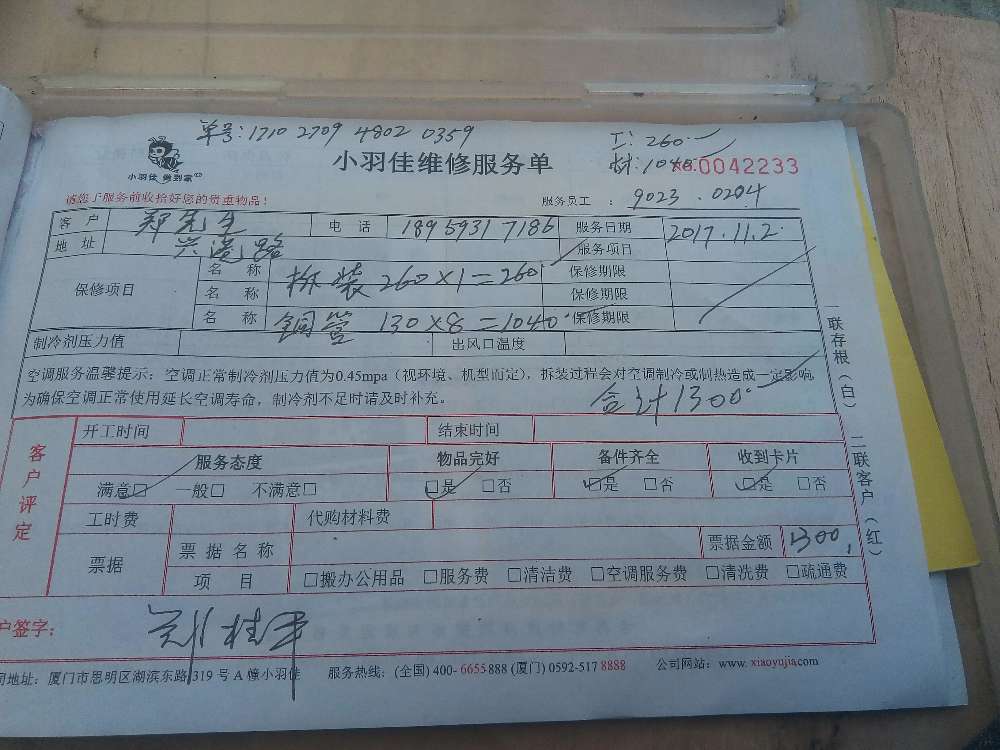 单号:1710 2709 4802 0359
工: 260
材: 1040
小羽佳 做到家
小羽佳维修服务单
No:0042233
请您于服务前收拾好您的贵重物品!
服务员工 : 9023 . 0204
客 户 郑先生 电 话 18959317186 服务日期 2017.11.2.
地 址 兴港路 服务项目
保修项目
名 称 拆装 260×1=260 保修期限
名 称 保修期限
名 称 铜管 130×8=1040 保修期限
制冷剂压力值 出风口温度
空调服务温馨提示: 空调正常制冷剂压力值为0.45mpa (视环境、机型而定), 拆装过程会对空调制冷或制热造成一定影响,
为确保空调正常使用延长空调寿命, 制冷剂不足时请及时补充。
合计1300
客户评定
开工时间 结束时间
服务态度 物品完好 备件齐全 收到卡片
满意□ 一般□ 不满意□ □是 □否 □是 □否 □是 □否
工时费 代购材料费
票据 票 据 名 称 票据金额 1300
项 目 □搬办公用品 □服务费 □清洁费 □空调服务费 □清洗费 □疏通费
户签字:
地址: 厦门市思明区湖滨东路 319 号 A 幢小羽佳 服务热线: (全国) 400- 6655 888 (厦门) 0592-517 8888 公司网站: www. xiaoyujia.com
一联存根(白) 二联客户(红)